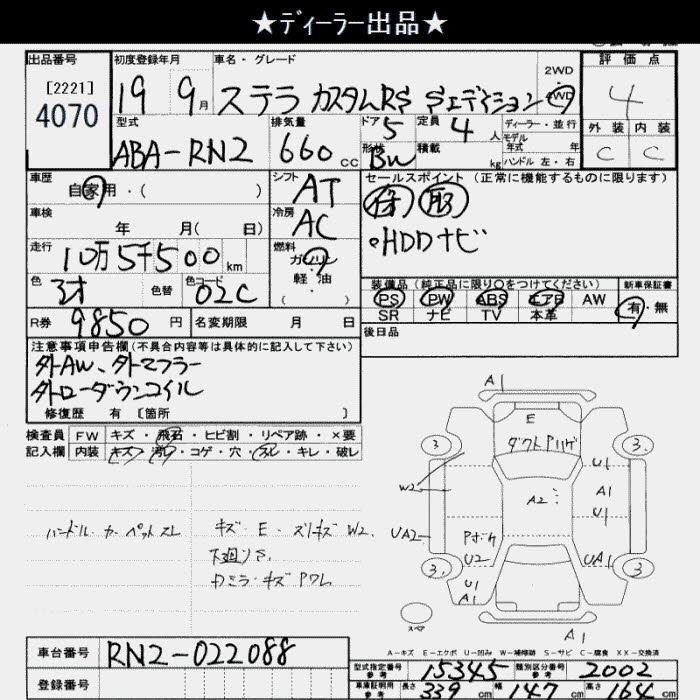 ★ディーラー出品★
出品番号 初度登録年月 車名・グレード 2WD 評価点
[2221] 19 9月 ステラ カスタムRS Sエディション 4WD 4
4070 型式 排気量 ドア 5 定員 4人 ディーラー・並行 外装 内装
ABA-RN2 660cc 形状 BW 積載 kg モデル年式 年 ハンドル 左・右 C C
車歴 自家用・( ) シフト AT セールスポイント (正常に機能するものに限ります)
車検 年 月(日) 冷房 AC
・HDDナビ
走行 10万5千500km 燃料 ガソリン・軽油
( )
色 色替 色コード 02C 装備品(純正品に限り○をつけてください) 新車保証書
PS PW ABS エアB AW 有・無
SR ナビ TV 本革
R券 9850円 名変期限 月 日 後日品
注意事項申告欄(不具合内容等は具体的に記入して下さい)
外AW、外マフラー
外ローダウンコイル
修復歴 有 〔箇所 〕
検査員 FW キズ・飛石・ヒビ割・リペア跡・×要
記入欄 内装 キズ・汚れ・コゲ・穴・スレ・キレ・破レ
A1
E
ダクトハリゲ
3 3
U1
W2 A1
A2
U1
ハンドル・カーペットスレ キズ・E・スリキズW2. UA2
下廻りS.
U2 UA1
3 3
U1
A1
スペア
A1
A-キズ E-エクボ U-凹み W-補修跡 S-サビ C-腐食 XX-交換済
車台番号 RN2-022088
型式指定番号 参考 15345 類別区分番号 参考 2002
登録番号 車庫証明用 参考 長さ 339cm 幅 147cm 高さ 164cm